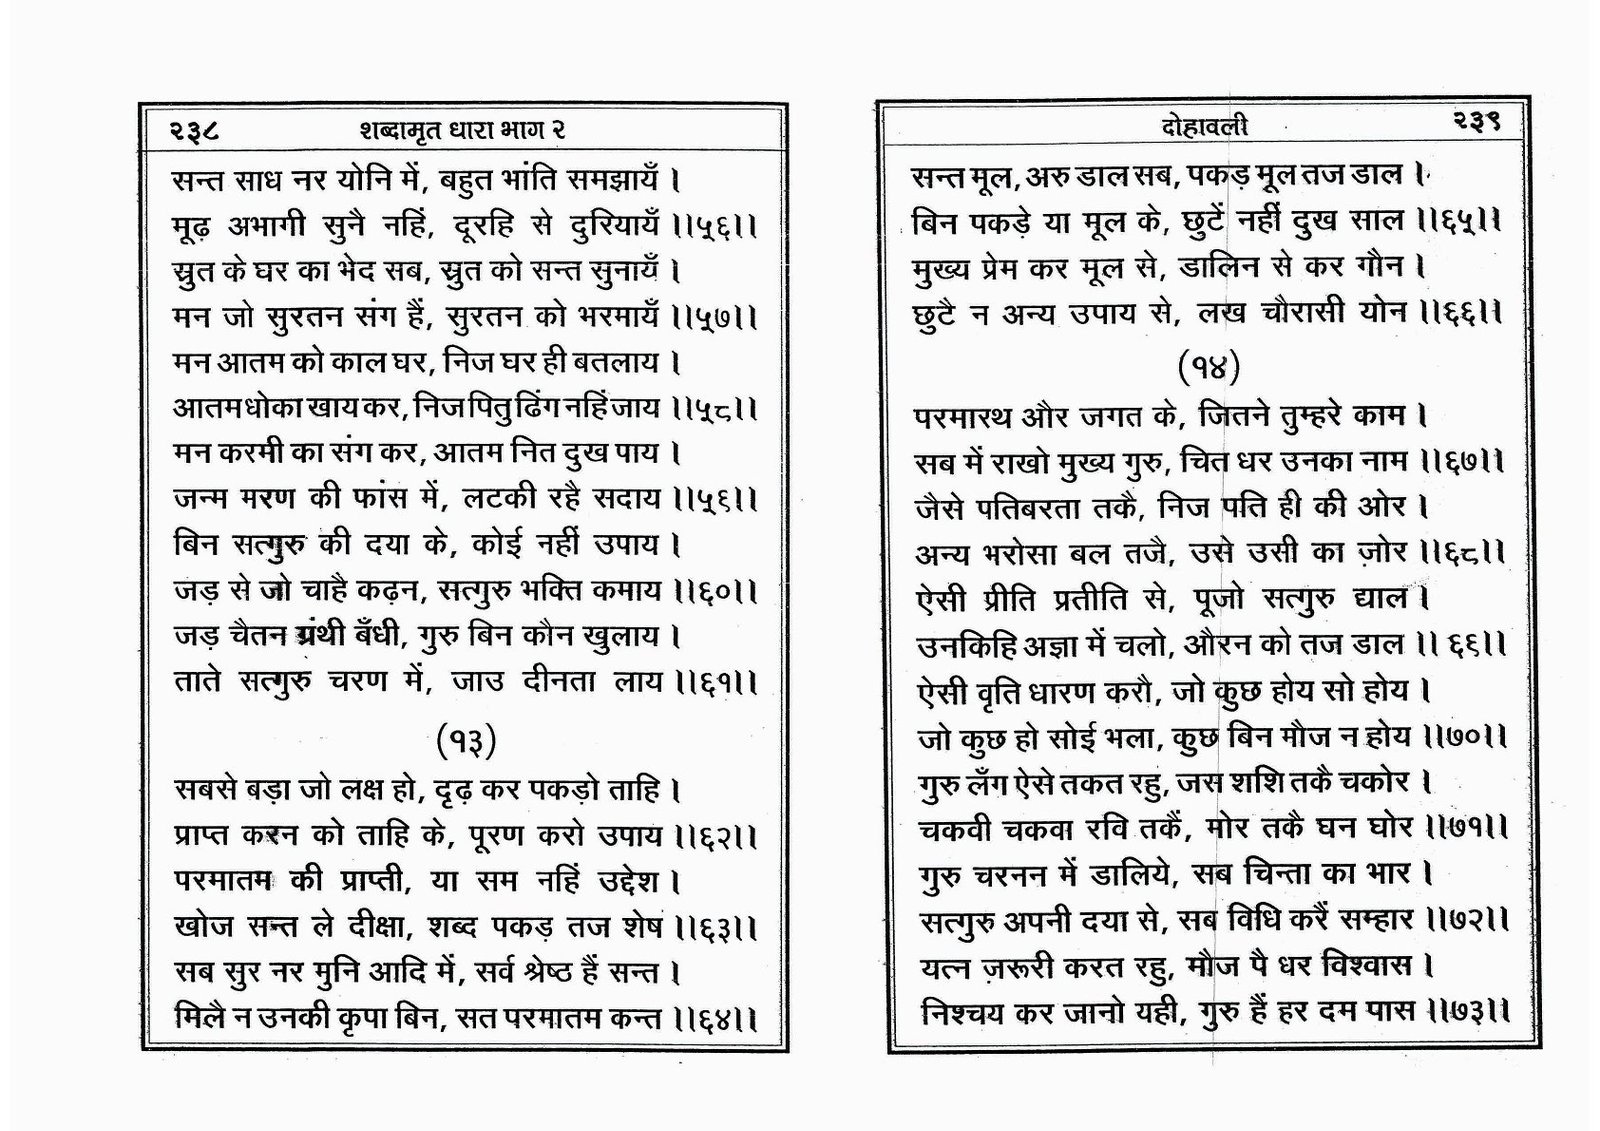 २३८ शब्दामृत धारा भाग २
सन्त साध नर योनि में, बहुत भांति समझायँ ।
मूढ़ अभागी सुनै नहिं, दूरहि से दुरियायँ ।।५६।।
स्रुत के घर का भेद सब, स्रुत को सन्त सुनायँ ।
मन जो सुरतन संग हैं, सुरतन को भरमायँ ।।५७।।
मन आतम को काल घर, निज घर ही बतलाय ।
आतम धोका खाय कर, निज पितु ढिंग नहिं जाय ।।५८।।
मन करमी का संग कर, आतम नित दुख पाय ।
जन्म मरण की फांस में, लटकी रहै सदाय ।।५९।।
बिन सत्गुरु की दया के, कोई नहीं उपाय ।
जड़ से जो चाहै कढ़न, सत्गुरु भक्ति कमाय ।।६०।।
जड़ चैतन ग्रंथी बँधी, गुरु बिन कौन खुलाय ।
ताते सत्गुरु चरण में, जाउ दीनता लाय ।।६१।।
(१३)
सबसे बड़ा जो लक्ष हो, दृढ़ कर पकड़ो ताहि ।
प्राप्त करन को ताहि के, पूरण करो उपाय ।।६२।।
परमातम की प्राप्ती, या सम नहिं उद्देश ।
खोज सन्त ले दीक्षा, शब्द पकड़ तज शेष ।।६३।।
सब सुर नर मुनि आदि में, सर्व श्रेष्ठ हैं सन्त ।
मिलै न उनकी कृपा बिन, सत परमातम कन्त ।।६४।।
दोहावली २३९
सन्त मूल, अरु डाल सब, पकड़ मूल तज डाल ।
बिन पकड़े या मूल के, छुटें नहीं दुख साल ।।६५।।
मुख्य प्रेम कर मूल से, डालिन से कर गौन ।
छुटै न अन्य उपाय से, लख चौरासी योन ।।६६।।
(१४)
परमारथ और जगत के, जितने तुम्हरे काम ।
सब में राखो मुख्य गुरु, चित धर उनका नाम ।।६७।।
जैसे पतिबरता तकै, निज पति ही की ओर ।
अन्य भरोसा बल तजै, उसे उसी का ज़ोर ।।६८।।
ऐसी प्रीति प्रतीति से, पूजो सत्गुरु द्याल ।
उनकिहि अज्ञा में चलो, औरन को तज डाल ।। ६९।।
ऐसी वृति धारण करौ, जो कुछ होय सो होय ।
जो कुछ हो सोई भला, कुछ बिन मौज न होय ।।७०।।
गुरु लँग ऐसे तकत रहु, जस शशि तकै चकोर ।
चकवी चकवा रवि तकैं, मोर तकै घन घोर ।।७१।।
गुरु चरनन में डालिये, सब चिन्ता का भार ।
सत्गुरु अपनी दया से, सब विधि करैं सम्हार ।।७२।।
यत्न ज़रूरी करत रहु, मौज पै धर विश्वास ।
निश्चय कर जानो यही, गुरु हैं हर दम पास ।।७३।।